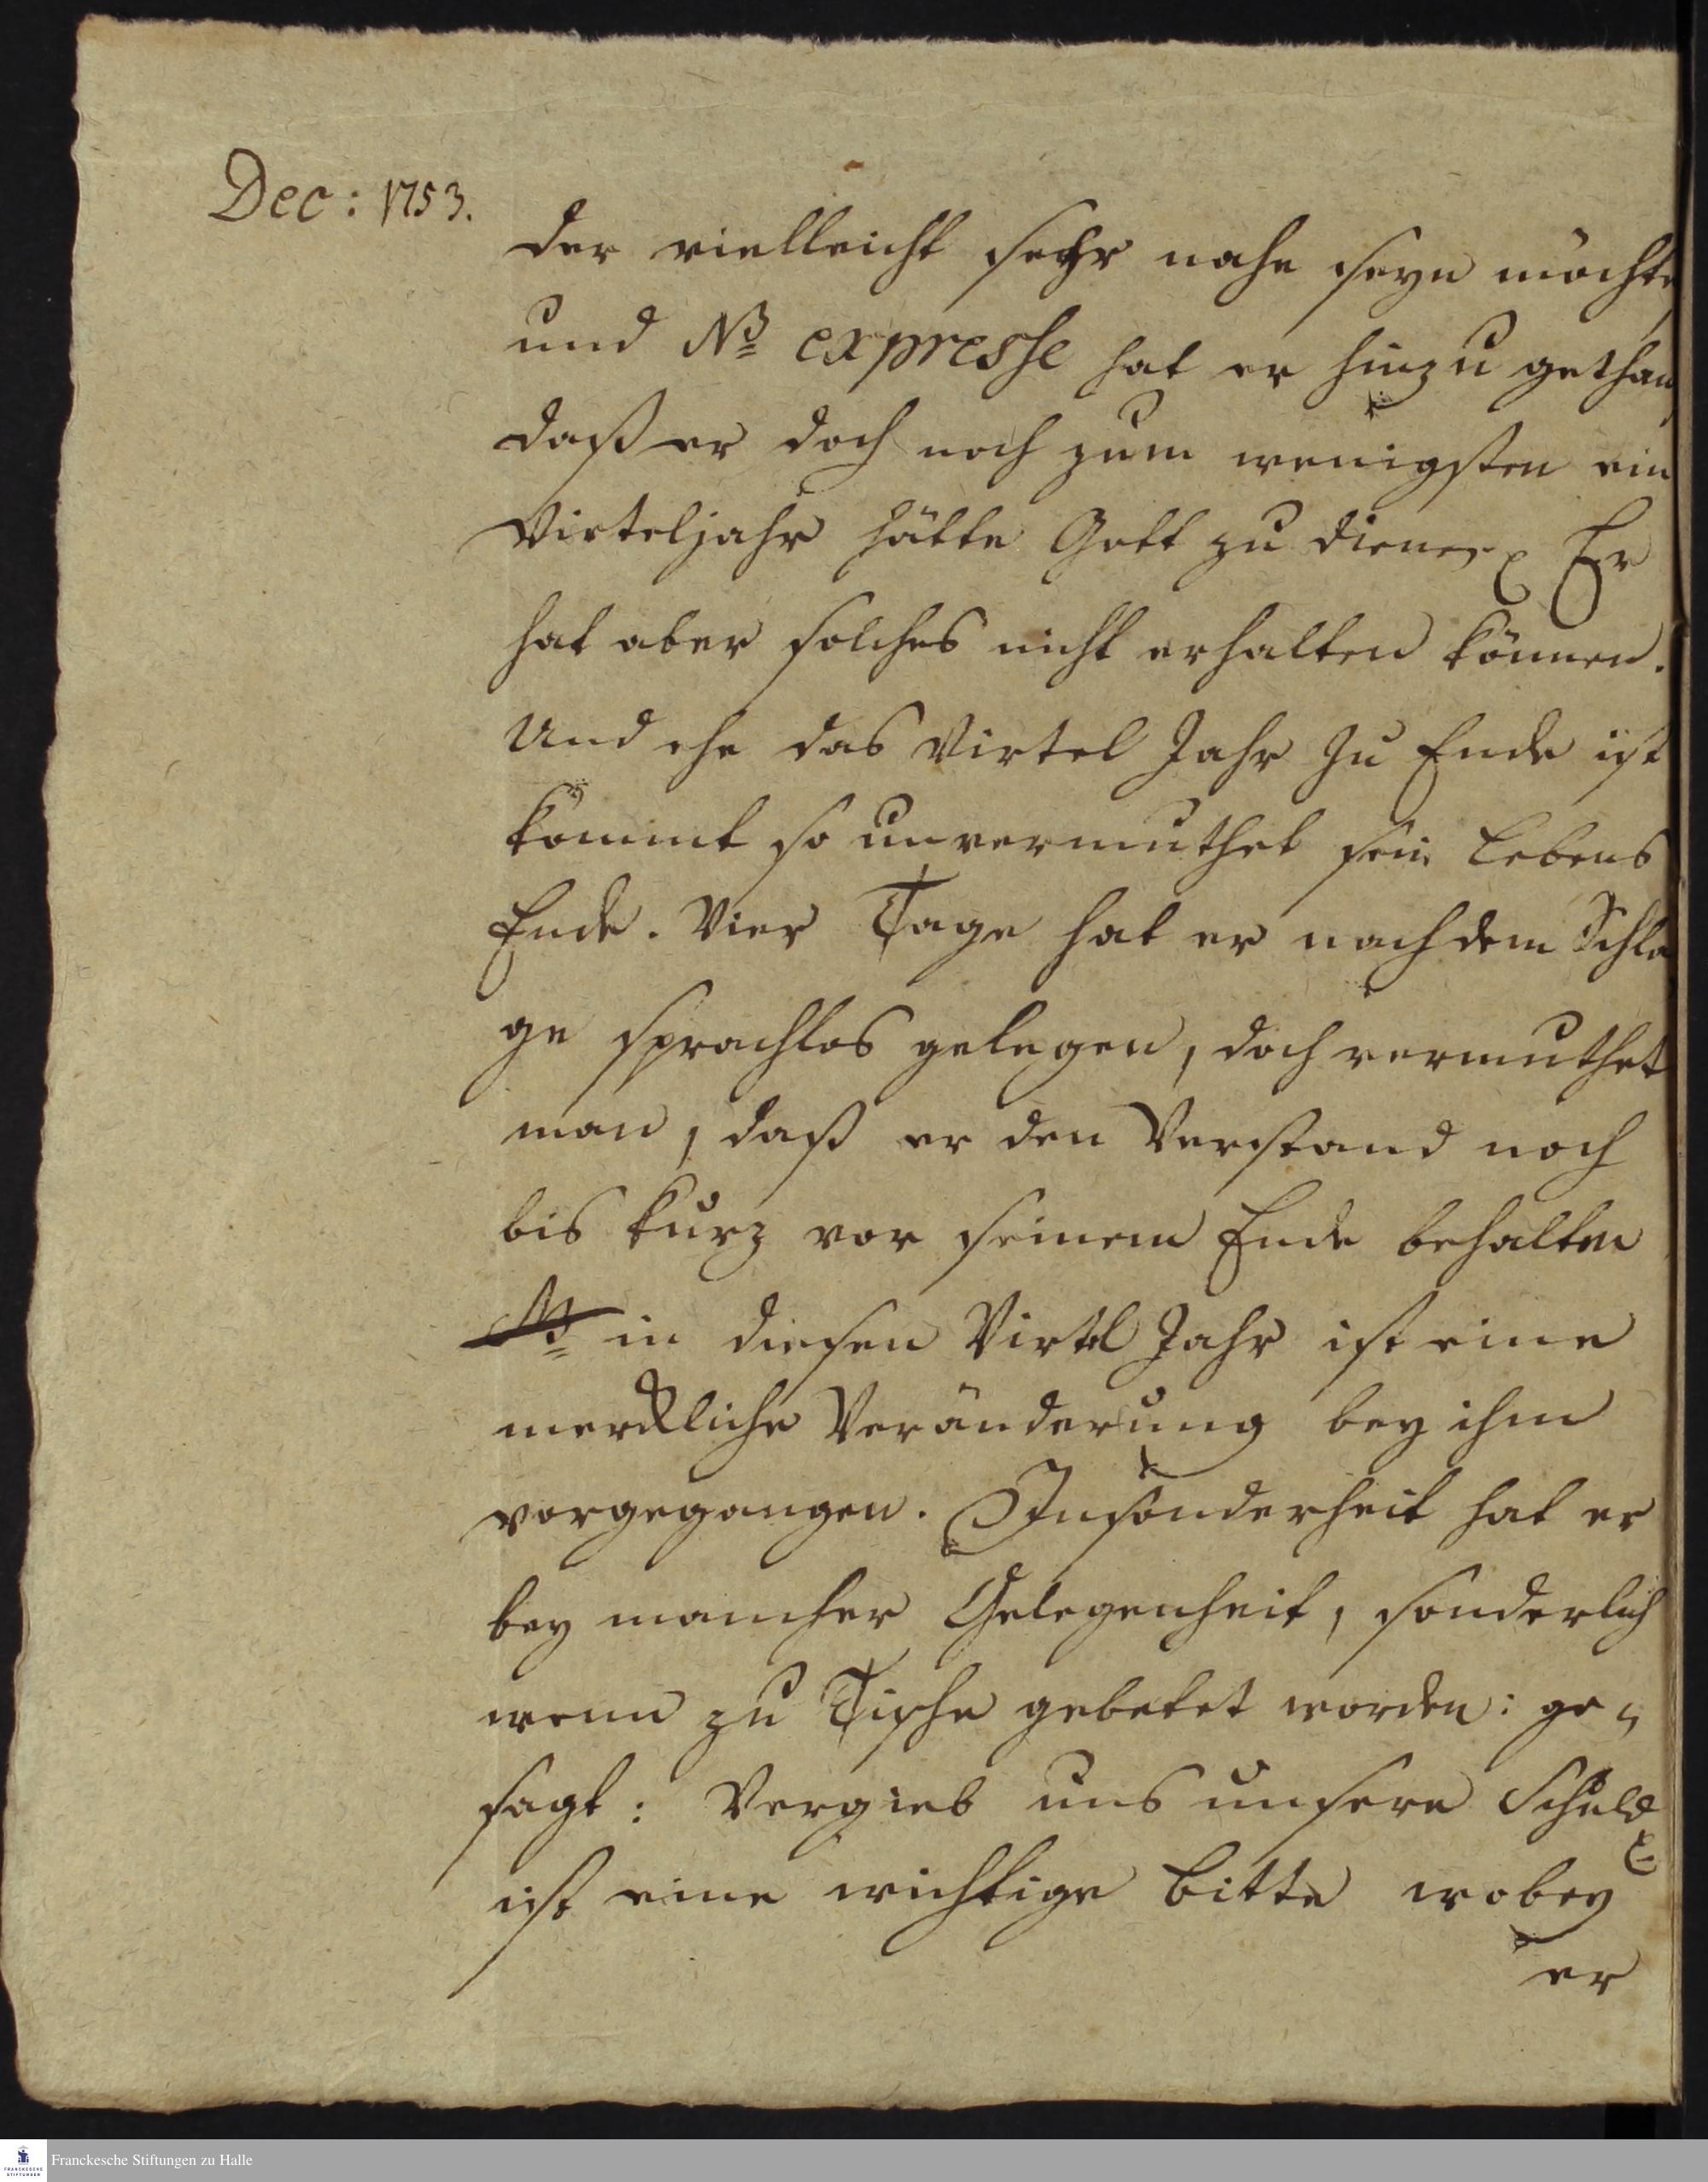 Dec: 1753.
der vielleicht sehr nahe seyn möchte,
und NB expresse hat er hinzu gethan,
daß er doch noch zum wenigsten ein
Virteljahr hätte Gott zu dienen. Er
hat aber solches nicht erhalten können.
Und ehe das Virtel Jahr zu Ende ist
kömmt so unvermuthet sein Lebens
Ende. Vier Tage hat er nach dem Schla
ge sprachlos gelegen, doch vermuthet
man, daß er den Verstand noch
bis kurz vor seinem Ende behalten
NB in diesen Virtel Jahr ist eine
merckliche Veränderung bey ihm
vorgegangen. Insonderheit hat er
bey mancher Gelegenheit, sonderlich
wenn zu Tische gebetet worden: ge=
sagt: Vergieb uns unsere Schuld
ist eine wichtige bitte wobey
er
FRANCKESCHE STIFTUNGEN
Franckesche Stiftungen zu Halle